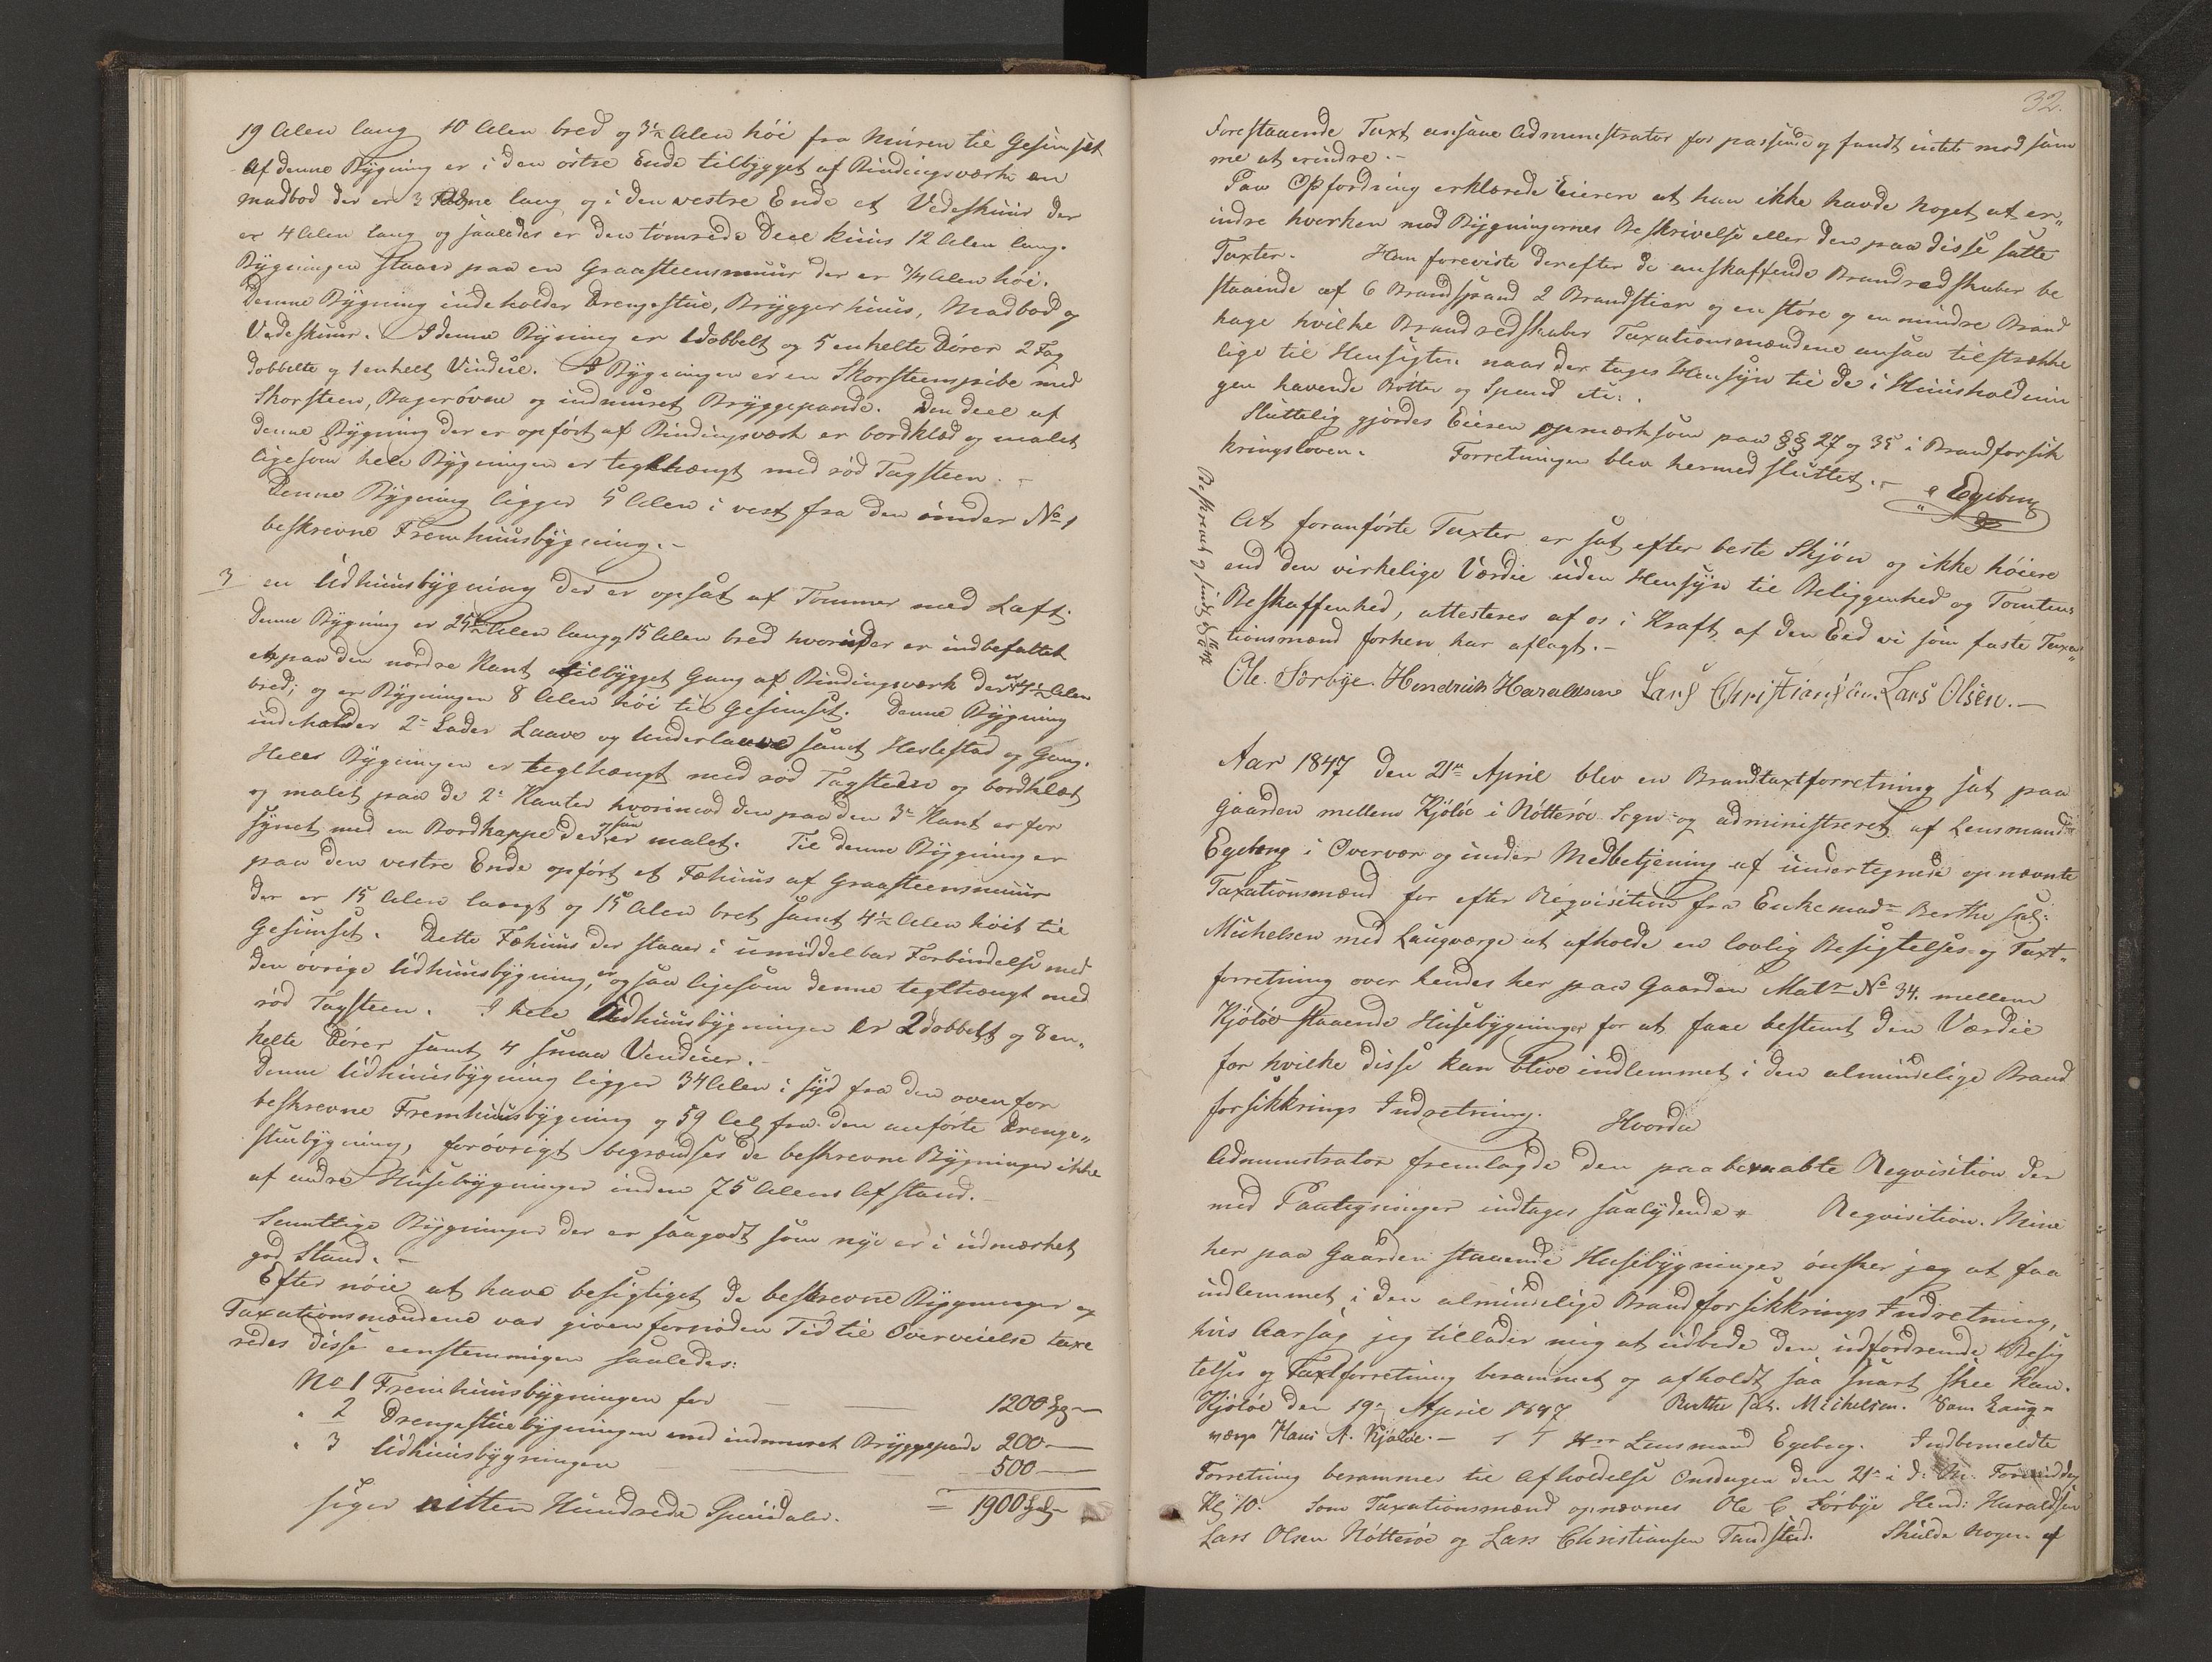 19 Alen lang 10 Alen bred og 3½ Alen höi fra Muren til Gesimset
Af denne Bygning er i den östre Ende tilbygget af Bindingsværk en
madbod der er 3 Alne lang og i den vestre Ende et Vedeskuur der
er 4 Alen lang og saaledes er den tömrede Deel kuns 12 Alen lang.
Bygningen staaer paa en Graasteensmuur der er ¾ Alen höi.
Denne Bygning indeholder Drengestue, Bryggerhuus, Madbod og
Vedeskuur. I denne Bygning er 1 dobbelt og 5 enkelte Dörer 2 Fag
dobbelte og 1 enkelt Vindue. I Bygningen er en Skorsteenspibe med
Skorsteen, Bagerovne og indmuret Bryggepande. Den deel af
denne Bygning der er opfört af Bindingsværk er bordklæd og malet
ligesom hele Bygningen er teglhængt med röd Tagsteen. -
Denne Bygning ligger 5 Alen i vest fra den under No 1
beskrevne Fremhuusbygning. -
3 en Udhuusbygning der er opsat af Tömmer med Laft.
Denne Bygning er 25½ Alen lang og 15 Alen bred hvorunder er indbefattet
et paa den nordre Kant tilbygget Gang af Bindingsværk der er 4½ Alen
bred; og er Bygningen 8 Alen höi til Gesimset. Denne Bygning
indeholder 2de Lader Laave og Underlaave samt Hestestad og Gang.
Heele Bygningen er teglhængt med röd Tagsteen og bordklæt
og malet paa de 2de Kanter hvorimod den paa den 3die Kant er for
synet med en Bordkappe der ogsaa er malet. Til denne Bygning er
paa den vestre Ende opfört et Fæhuus af Graasteensmuur
der er 15 Alen langt og 15 Alen bret samt 4½ Alen höit til
Gesimset. Dette Fæhuus der staaer i umiddelbar Forbindelse med
den övrige Udhuusbygning, er ogsaa ligesom denne teglhængt med
röd Tagsteen. I hele Udhuusbygningen er 2 dobbelt og 8 en„
kelte Dörer samt 4 smaa Vinduer. -
Denne Udhuusbygning ligger 34 Alen i syd fra den ovenfor
beskrevne Fremhuusbygning og 59 Al. fra den anförte Drenge„
stuebygning, forövrigt begrændses de beskrevne Bygninger ikke
af andre Husebygninger inden 75 Alens Afstand. -
Samtlige Bygninger der er saagodt som nye er i udmærket
god Stand. -
Efter nöie at have besigtiget de beskrevne Bygninger og
Taxationsmændene var given fornöden Tid til Overveielse taxe
redes disse eenstemmigen saaledes:
No 1 Fremhuusbygningen for 1200 Spd
" 2 Drengestuebygningen med indmuret Bryggepande 200 -
" 3 Udhuusbygningen 500 -
siger nitten Hundrede Speciedaler. = 1900 Spd
32.
Forestaaende Taxt ansaae Administrator for passende og fandt intet mod sam
me at erindre. -
Paa Opfordring erklærede Eieren at han ikke havde noget at er„
indre hverken mod Bygningernes Beskrivelse eller den paa disse satte
Taxter. Han foreviste derefter de anskaffende Brandredskaber be
staaende af 6 Brandspand 2 Brandstier og en store og en mindre Brand
hage hvilke Brandredskaber Taxationsmændene ansaa tilstrække
lige til Hensigten naar der tages Hensyn til de i Huusholdnin
gen havende Bötter og Spand etc.
Sluttelig gjordes Eieren opmærksom paa §§ 27 og 35 i Brandforsik
kringsloven. Forretningen blev hermed sluttet. - Egeberg
Beskrevet og sendt d.
At foranförte Taxter er sat efter beste Skjön og ikke höiere
end den virkelige Værdie uden Hensyn til Beliggenhed og Tomtens
Beskaffenhed, attesteres af os i Kraft af den Eed vi som faste Taxa„
tionsmænd forhen har aflagt. -
Ole Sörbye Hendrich Haraldsen Lars Christiansen Lars Olsen. -
Aar 1847 den 21de April blev en Brandtaxtforretning sat paa
Gaarden mellem Kjölöe i Nötteröe Sogn og administreret af Lensmand
Egeberg i Overvær og under Medbetjening af undertegnede opnævnte
Taxationsmænd for efter Reqvisition fra Enkemad= Berthe sal:
Michelsen med Laugværge at afholde en lovlig Besigtelses- og Taxt„
forretning over hendes her paa Gaarden Matr No 34. mellem
Kjölöe staaende Husebygninger for at faae bestemt den Værdie
for hvilke disse kan blive indlemmet i den almindelige Brand
forsikkrings Indretning. Hvorda
Administrator fremlagde den paaberaabte Reqvisition der
med Paategninger indtages saalydende " Reqvisition. Mine
her paa Gaarden staaende Husebygninger önsker jeg at faa
indlemmet i den almindelige Brandforsikkrings Indretning,
hvis Aarsag jeg tillader mig at udbede den udfordrende Besig
telses og Taxtforretning berammet og afholdt saa snart skee kan.
Kjölöe den 19de April 1847 Berthe sal. Michelsen. Som Laug=
værge Hans A. Kjölöe. - S T Hrr Lensmand Egeberg. Indbemeldte
Forretning berammes til Afholdelse Onsdagen den 21de i d: M: Formiddag
Kl 10. Som Taxationsmænd opnævnes Ole C Sörbye Hend: Haraldsen
Lars Olsen Nötteröe og Lars Christiansen Tandstad. Skulde nogen af